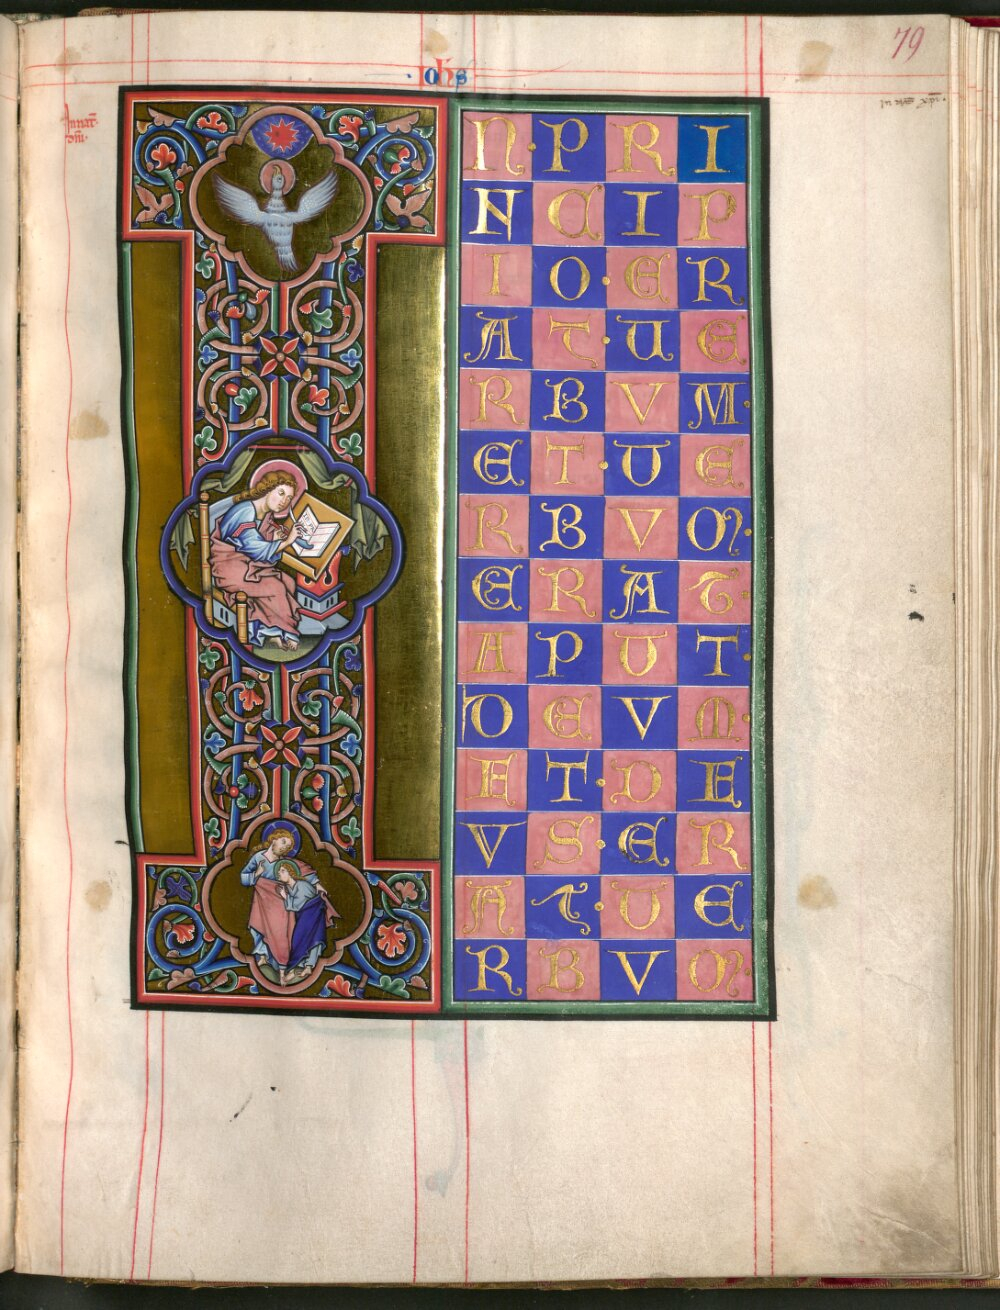 79
·ioħs
In nat̄·
dn̄i·
N·PRI
NCIP
IO·ER
AT·UE
RBVM·
ET·UE
RBVM·
ERAT·
APUT·
DEVM·
ET·DE
VS·ER
AT·UE
RBVM·